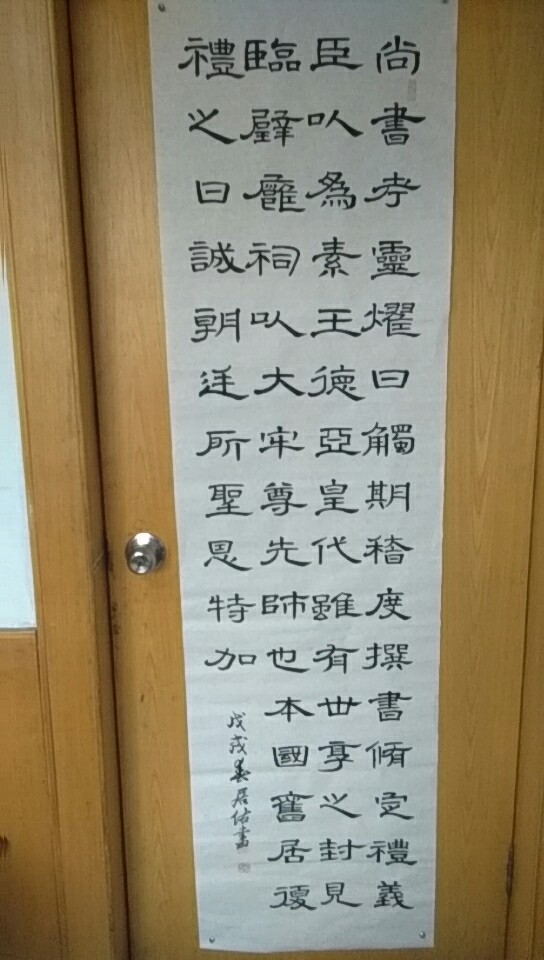 尚書考靈燿曰觸期稽度撰書脩定禮義
臣以為素王德亞皇代雖有世享之封見
臨辟廱祠以大牢尊先師也本國舊居復
禮之日誠朝廷所聖恩特加
戊戌春居佑書